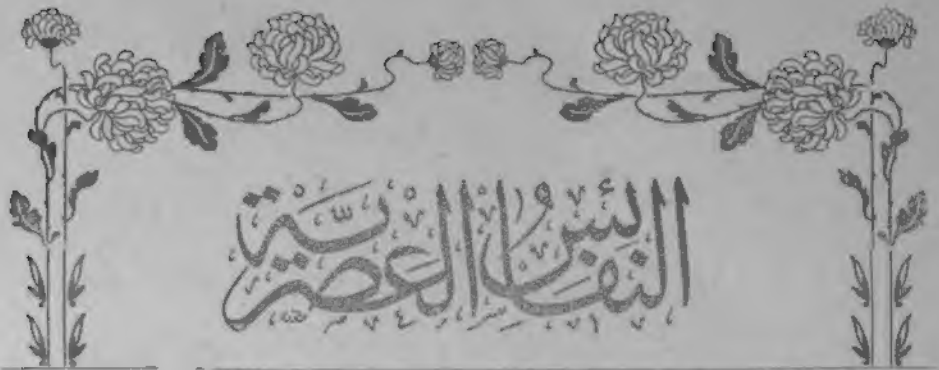 النَّفَائِسُ العَصْرِيَّة